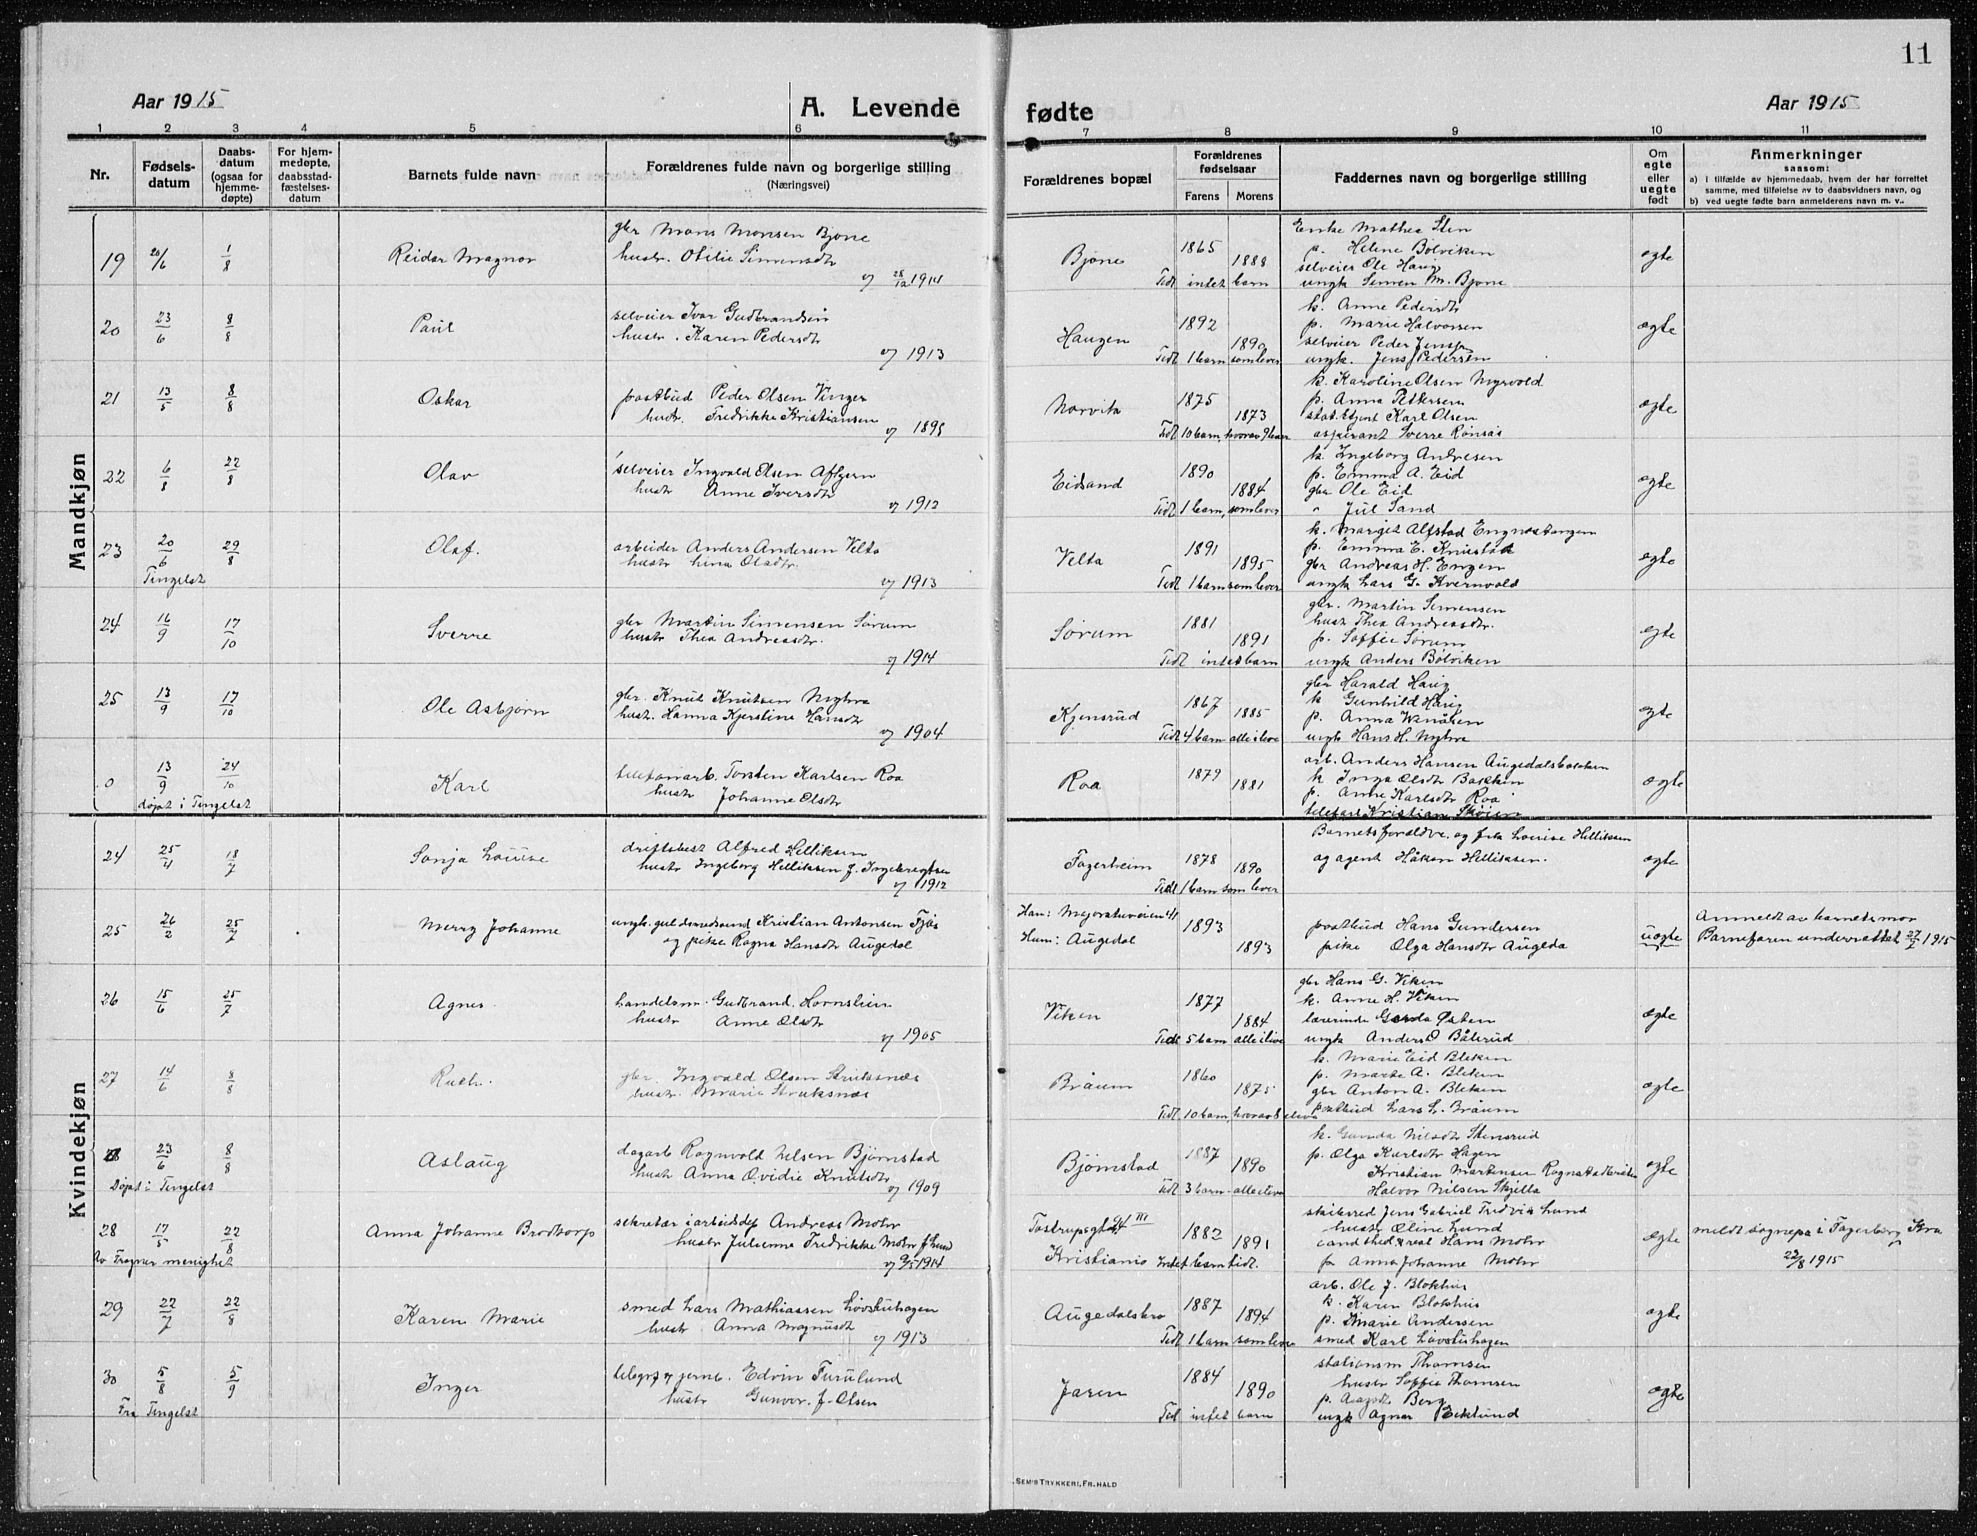 11
Aar 1915
A. Levende fødte
Aar 1915
1 2 3 4 5 6 7 8 9 10 11
Nr.
Fødsels-
datum
Daabs-
datum
(ogsaa for
hjemme-
døpte)
For hjem-
medøpte,
daabsstad-
fæstelses-
datum
Barnets fulde navn
Forældrenes fulde navn og borgerlige stilling
(Næringsvei)
Forældrenes bopæl
Forældrenes
fødselsaar
Farens Morens
Faddernes navn og borgerlige stilling
Om
egte
eller
uegte
født
Anmerkninger
saasom:
a) i tilfælde av hjemmedaab, hvem der har forrettet
samme, med tilføielse av to daabsvidners navn, og
b) ved uegte fødte barn anmelderens navn m. v..
Mandkjøn
19 20/6 1/8 Reidar Magnor
gbr Mons Monsen Bjone
hustr. Otilie Simensdtr
g 28/12 1914
Bjone 1865 1888
Tidl intet barn
Enke Mathea Sten
p. Helene Bølviken
selveier Ole Haug
ungk Simen M. Bjone
egte
20 23/6 8/8 Paul
selveier Ivar Gudbrandsen
hustr. Karen Pedersdtr
g 1913
Haugen 1892 1890
Tidl 1 barn som lever
k. Anne Pedersdtr
p. Marie Halvorsen
selveier Peder Jensen
ungk. Jens Pedersen
egte
21 13/5 8/8 Oskar
postbud Peder Olsen Vinger
hustr. Fredrikke Kristiansen
g 1895
Norvik 1875 1873
Tidl 10 barn, hvorav 9 lever
k. Karoline Olsen Myrvold
p. Anna Pettersen
stat.btjent Karl Olsen
aspirant Sverre Rønsås
egte
22 6/8 22/8 Olav
selveier Ingvald Olsen
hustr Anne Iversdtr
g 1912
Eidsand 1890 1884
Tidl 1 barn, som lever
k. Ingeborg Andresen
p. Emma A. Eid
gbr Ole Eid
" Jul Sand
egte
23 20/6 29/8 Olaf.
Tingelst
arbeider Anders Andersen Velta
hustr Lina Olsdtr.
g 1913
Velta 1891 1895
Tidl 1 barn som lever
k. Margit Alfstad Engnestangen
p. Emma E. Knustad
gbr Andreas H. Engen
ungk Lars G. Kvernvold
egte
24 16/9 17/10 Sverre
gbr Martin Simensen Sørum
hustr Thea Andreasdtr.
g 1914
Sørum 1881 1891
Tidl intet barn
gbr. Martin Simensen
hust Thea Andreasdtr.
p. Soffie Sørum
ungk Anders Bølviken
egte
25 13/9 17/10 Ole Asbjørn
gbr. Knut Knutsen Myhra
hustr. Hanna Kjerstine Hansdtr
g 1904
Kjensrud 1867 1885
Tidl 4 barn alle i live
gbr Harald Haug
k Gunhild Haug
p. Anna Wenåsen
ungk Hans H. Myhre
egte
0 13/9 24/10 Karl
døpt i Tingelst
telefonarb. Torsten Karlsen Roa
hustr Johanne Olsdtr
Roa 1879 1881
arb. Anders Hansen Augedalsbakken
k Inga Olsdtr Bakken
p. Anne Karlsdtr Roa
telefarb Kristian Skøien
egte
Kvindekjøn
24 25/4 18/7 Sonja Louise
driftsbest Alfred Helliksen
hustr Ingeborg Helliksen f. Ingebregtsen
g 1912
Fagerheim 1878 1890
Tidl 1 barn som lever
Barnets forældre, og frk Louise Helliksen
og agent Håkon Helliksen.
egte
25 26/2 25/7 Merry Johanne
ungk. guldsmedsvend Kristian Antonsen Fjøs
og pike Ragna Hansdtr Augedal
Han: Majorstuveien 41
Hun: Augedal
1893 1893
postbud Hans Gundersen
pike Olga Hansdtr Augeda
uegte
Anmeldt av barnets mor
Barnefaren underrettet 27/7 1915
26 15/6 25/7 Agnes
handelsm. Gudbrand Hornslien
hustr Anne Olsdtr
g 1905
Viken 1877 1884
Tidl 5 barn alle i live
gbr Hans G. Viken
k. Anne H. Viken
lærerinde Gerda Østen
ungk Anders O Bålerud
egte
27 14/6 8/8 Ruth.
gbr. Ingvald Olsen Struksnæs
hustr. Marie Struksnæs
Bråum 1860 1875
Tidl. 10 barn, hvorav 8 i live
k. Marie Eid Bleken
p. Marte A. Bleken
gbr Anton A. Bleken
postbud Lars L. Bråum
egte
28 23/6 8/8 Aslaug
Døpt i Tingelst
dagarb Ragnvold Nelsen Bjørnstad
hustr Anna Ovidie Knutsdtr
g 1909
Bjørnstad 1887 1890
Tidl. 3 barn - alle i live
k. Gunda Nilsdtr Stensrud
p. Olga Karlsdtr Hagen
Kristian Martensen
Halvor Nilsen Skjella
egte
28 17/5 22/8 Anna Johanne Brodtkorp
Av Frogner menighet
sekretær i arbeidsdep Andreas Mohr
hustr Julienne Fredrikke Mohr f. Lund
g 9/5 1914
Tostrupsgt 24 III
Kristiania
1882 1891
Intet barn tidl.
skibsred Jens Gabriel Fredvig Lund
hustr Oline Lund
cand theol & real Hans Mohr
fr Anna Johanne Mohr
egte
meldt sognepr i Fagerborg Kra
22/8 1915
29 22/7 22/8 Karen Marie
smed Lars Mathiassen Løvstuhagen
hustr. Anna Magnusdt
g 1913
Augedalsbro 1887 1894
Tidl 1 barn som lever
arb. Ole J. Blokhus
k. Karen Blokhus
p. Marie Andersen
smed Karl Løvstuhagen
egte
30 5/8 5/9 Inger
Fra Tingelst
telegrf v jernb. Edvin Furulund
hustr Gunvor f. Olsen
Jaren 1884 1890
Tid intet barn
stationsm Thomsen
hustr Soffie Thomsen
p. Aagot Berg
ungk Agnar Eklund
egte
SEM'S TRYKKERI, FR.HALD